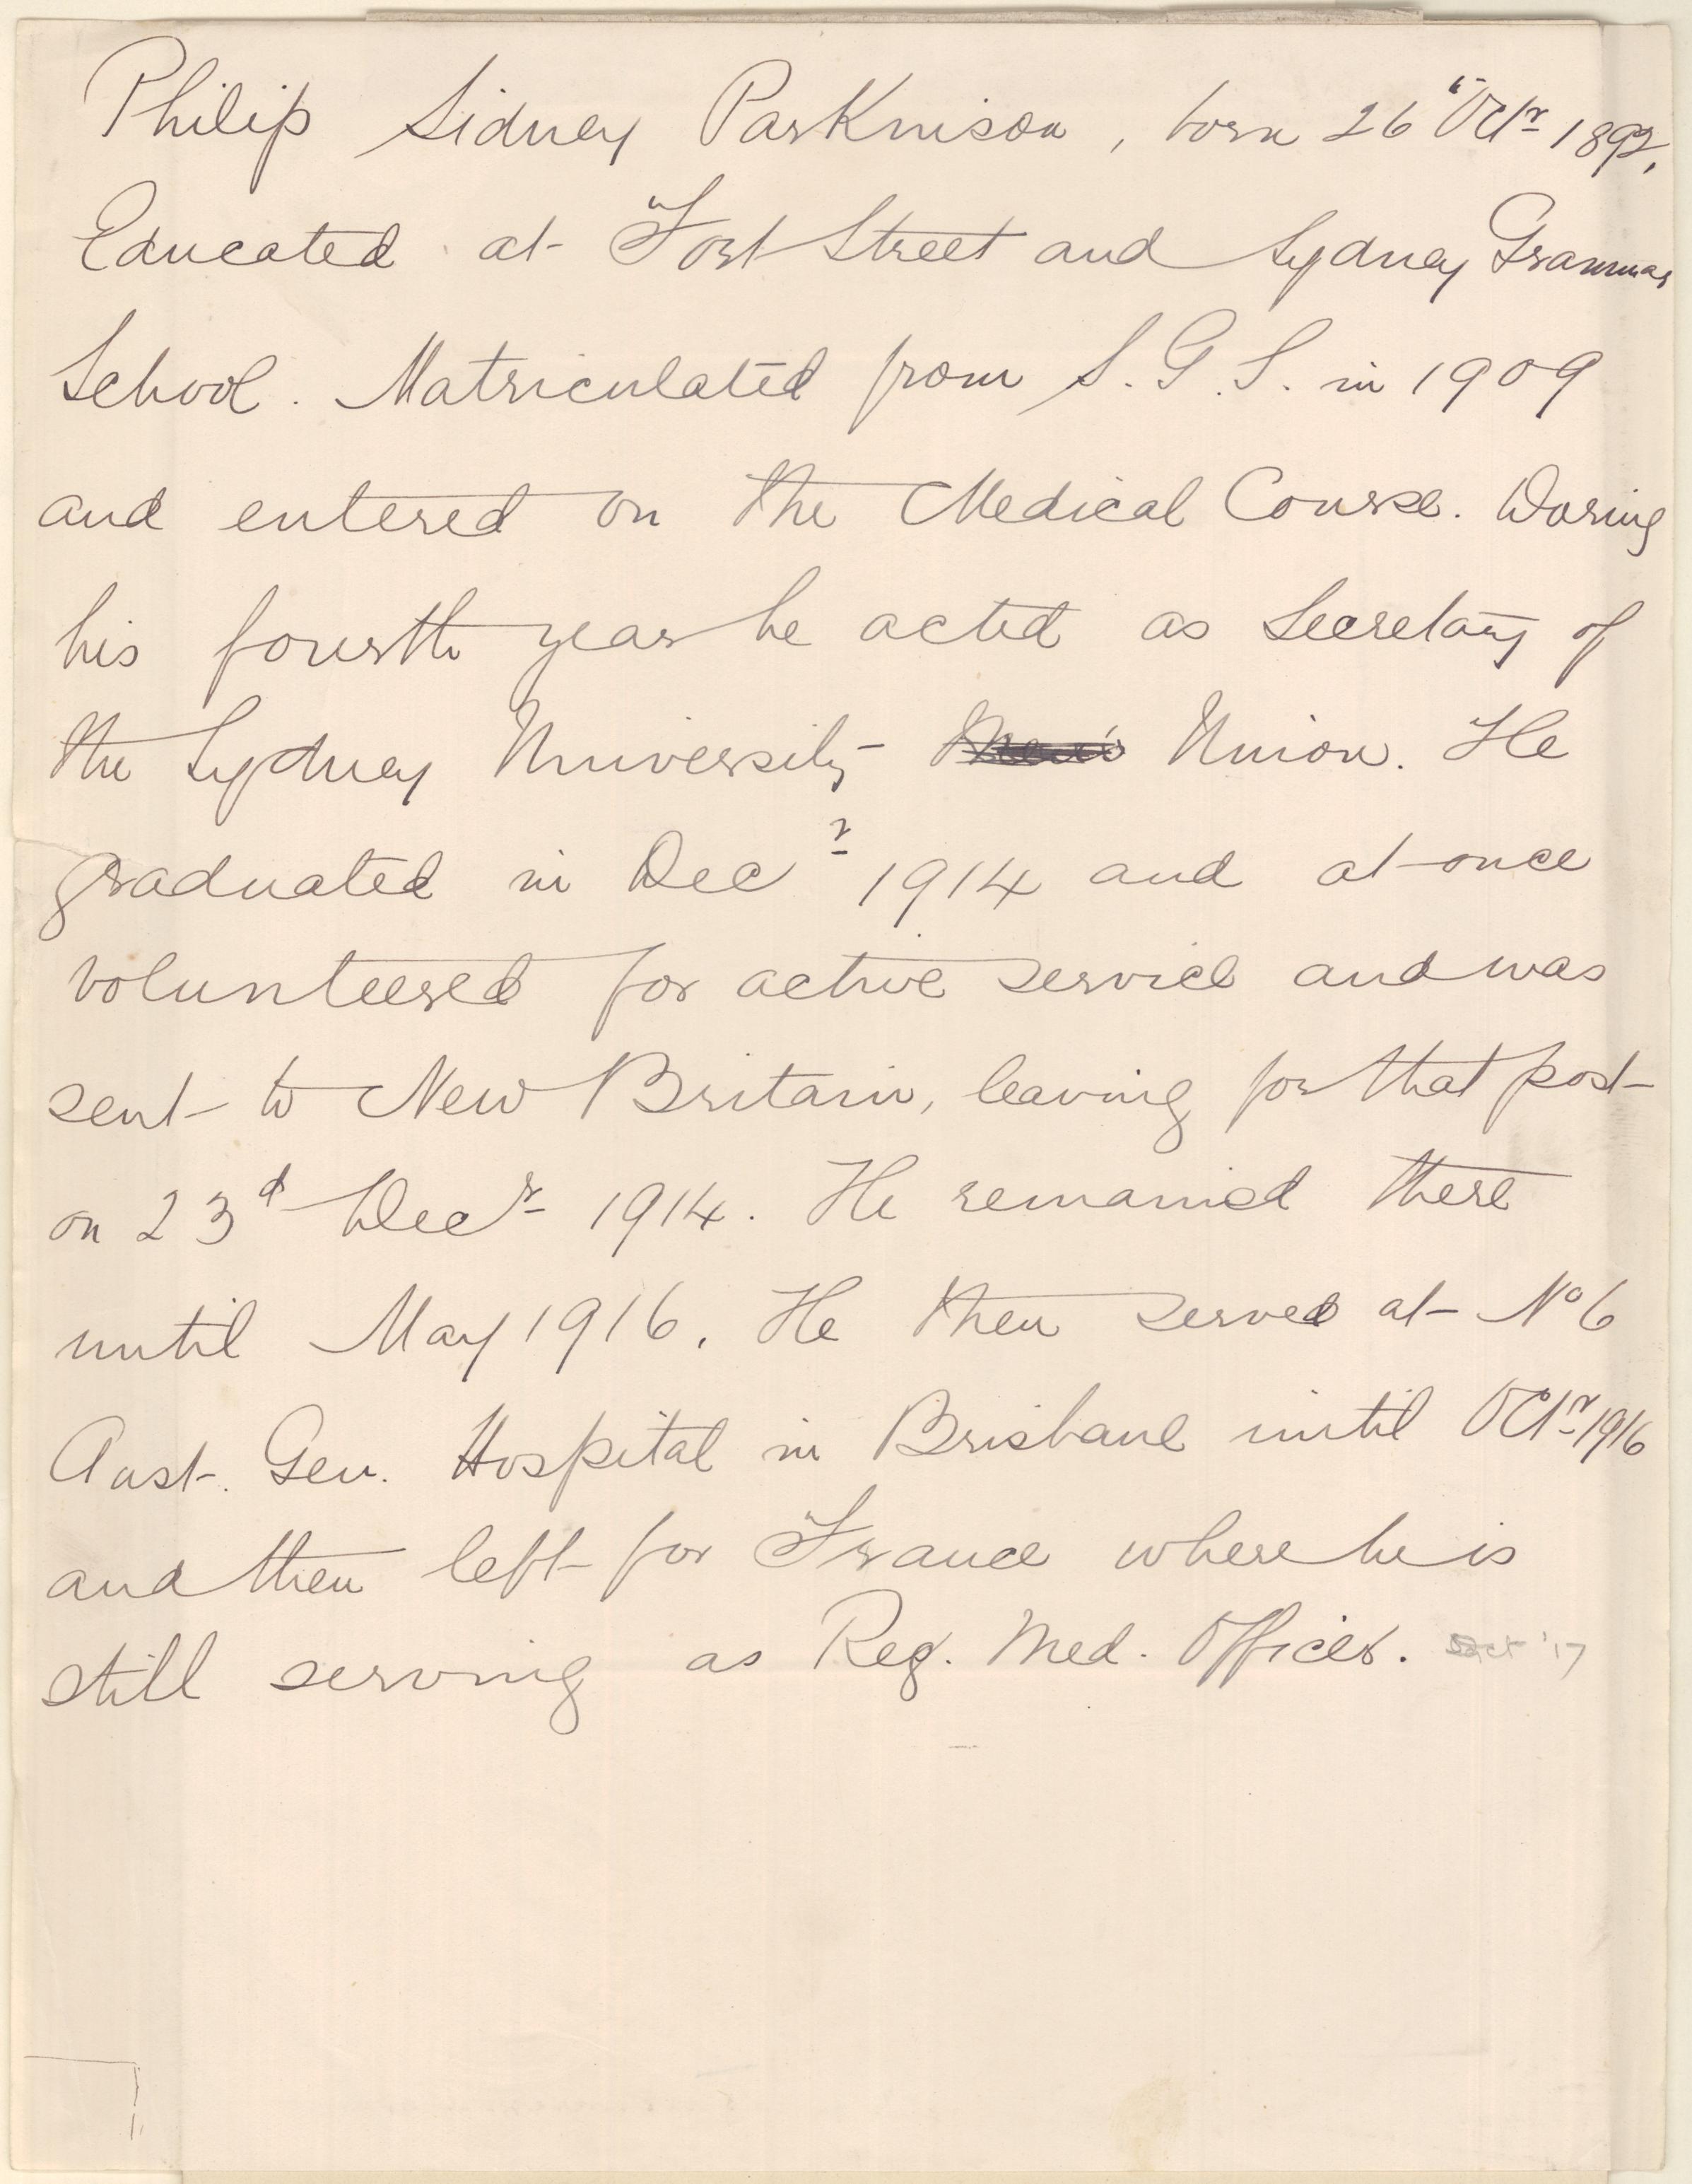 Philip Sidney Parkinson, born 26" Octr 1892.
Educated at Fort Street and Sydney Grammar
School. Matriculated from S.G.S. in 1909
and entered on the Medical Course. During
his fourth year he acted as Secretary of
the Sydney University Union. He
graduated in Decr 1914 and at once
volunteered for active service and was
sent to New Britain, leaving for that post
on 23d Decr 1914. He remained there
until May 1916. He then served at No 6
Aust. Gen. Hospital in Brisbane until Octr 1916
and then left for France where he is
still serving as Reg. Med. Officer. '17